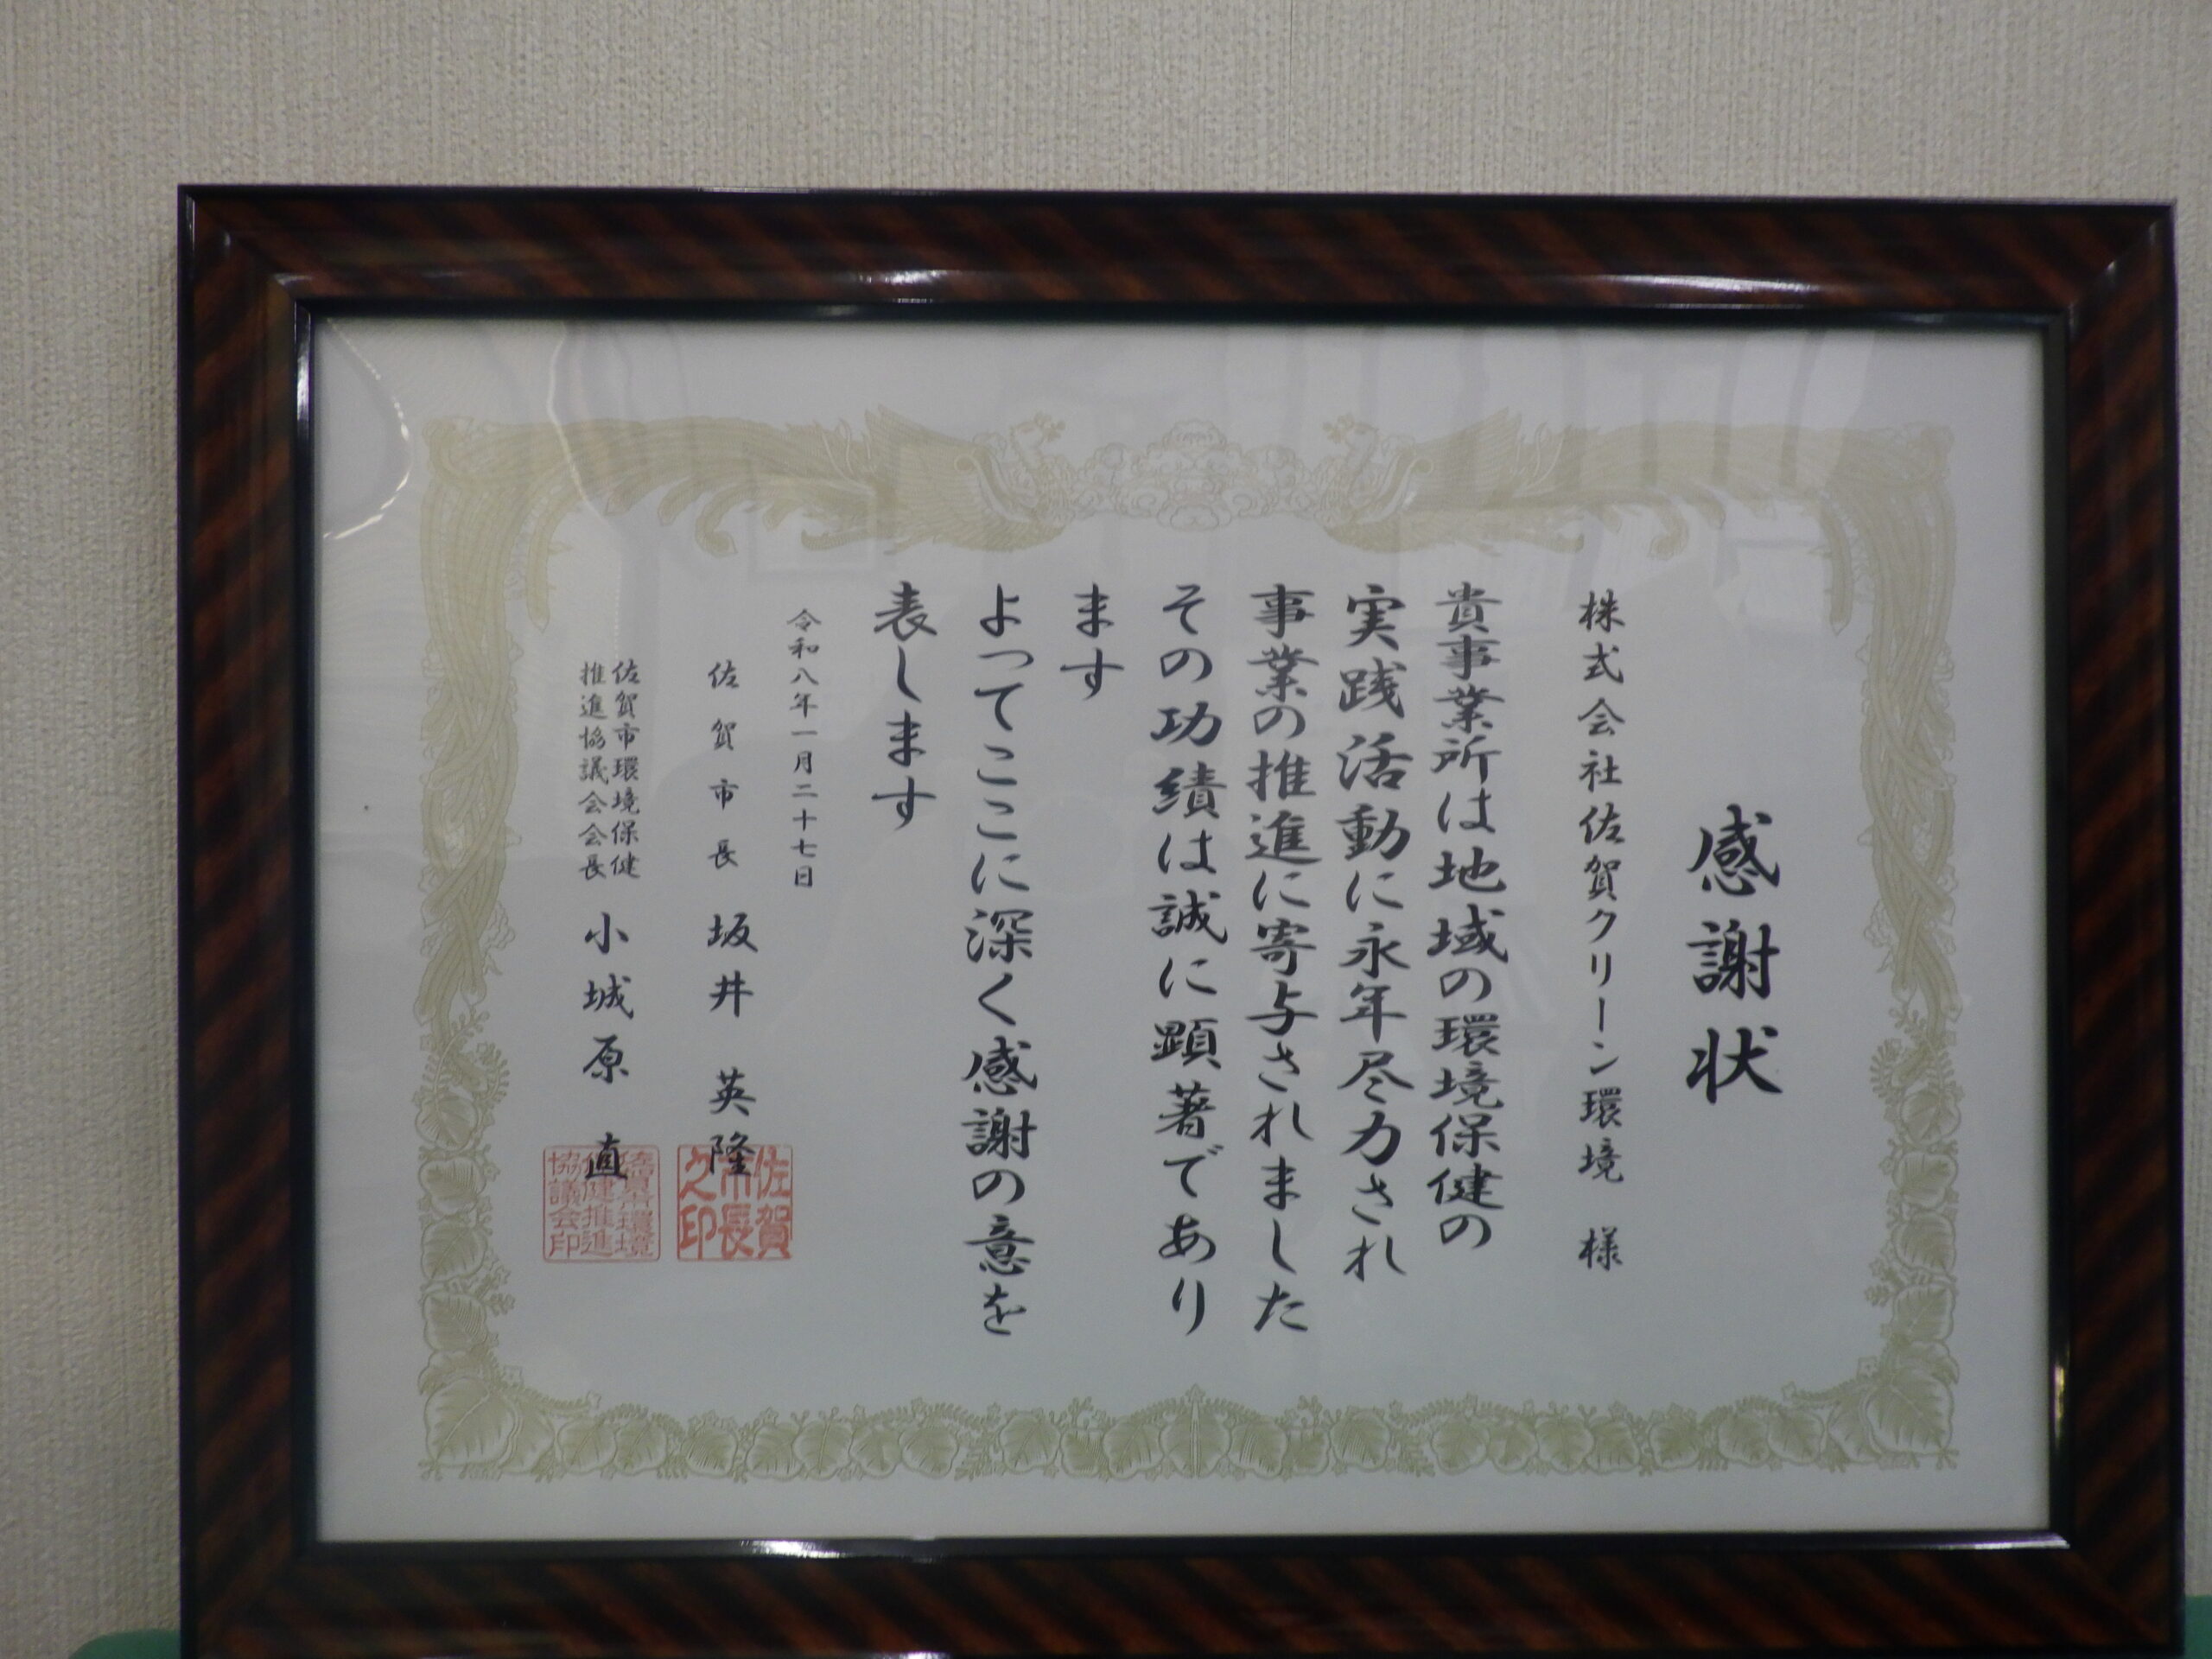 感謝状
株式会社佐賀クリーン環境 様
貴事業所は地域の環境保健の
実践活動に永年尽力され
事業の推進に寄与されました
その功績は誠に顕著であり
ます
よってここに深く感謝の意を
表します
令和八年一月二十七日
佐賀市長 坂井 英隆
佐賀市長之印
佐賀市環境保健
推進協議会会長 小城原 直
佐賀市環境保健推進協議会印